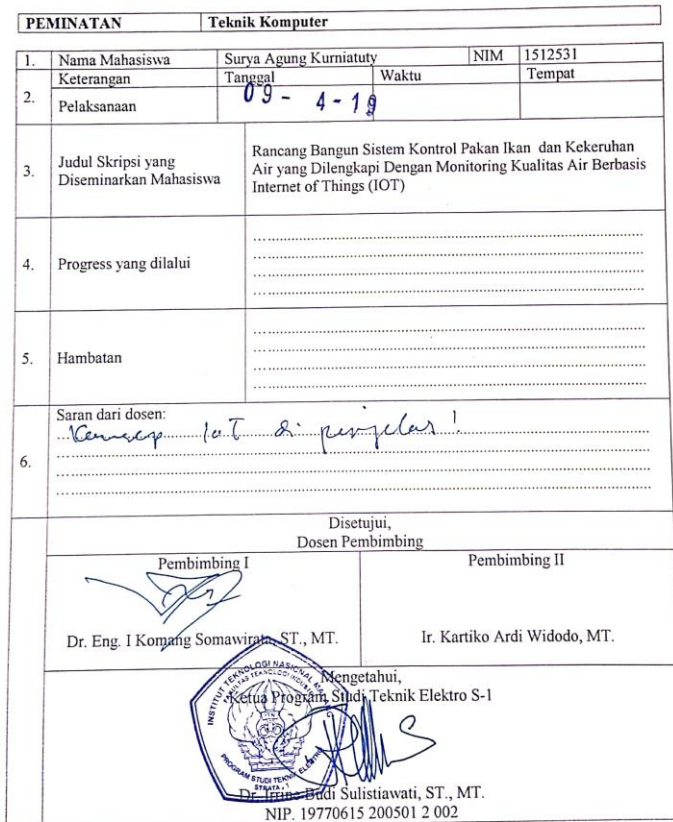 PEMINATAN Teknik Komputer
1. Nama Mahasiswa Surya Agung Kurniatuty NIM 1512531
2. Keterangan Tanggal Waktu Tempat
Pelaksanaan 09 - 4 - 19
3. Judul Skripsi yang Diseminarkan Mahasiswa
Rancang Bangun Sistem Kontrol Pakan Ikan dan Kekeruhan
Air yang Dilengkapi Dengan Monitoring Kualitas Air Berbasis
Internet of Things (IOT)
4. Progress yang dilalui
5. Hambatan
6. Saran dari dosen:
Konsep IoT di perjelas !
Disetujui,
Dosen Pembimbing
Pembimbing I Pembimbing II
Dr. Eng. I Komang Somawirata, ST., MT. Ir. Kartiko Ardi Widodo, MT.
Mengetahui,
Ketua Program Studi Teknik Elektro S-1
INSTITUT TEKNOLOGI NASIONAL
FAKULTAS TEKNOLOGI INDUSTRI
PROGRAM STUDI TEKNIK ELEKTRO
STRATA - 1
Dr. Irrine Budi Sulistiawati, ST., MT.
NIP. 19770615 200501 2 002